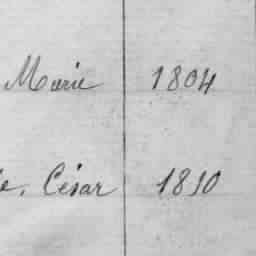 Marie 1804
e, César 1810